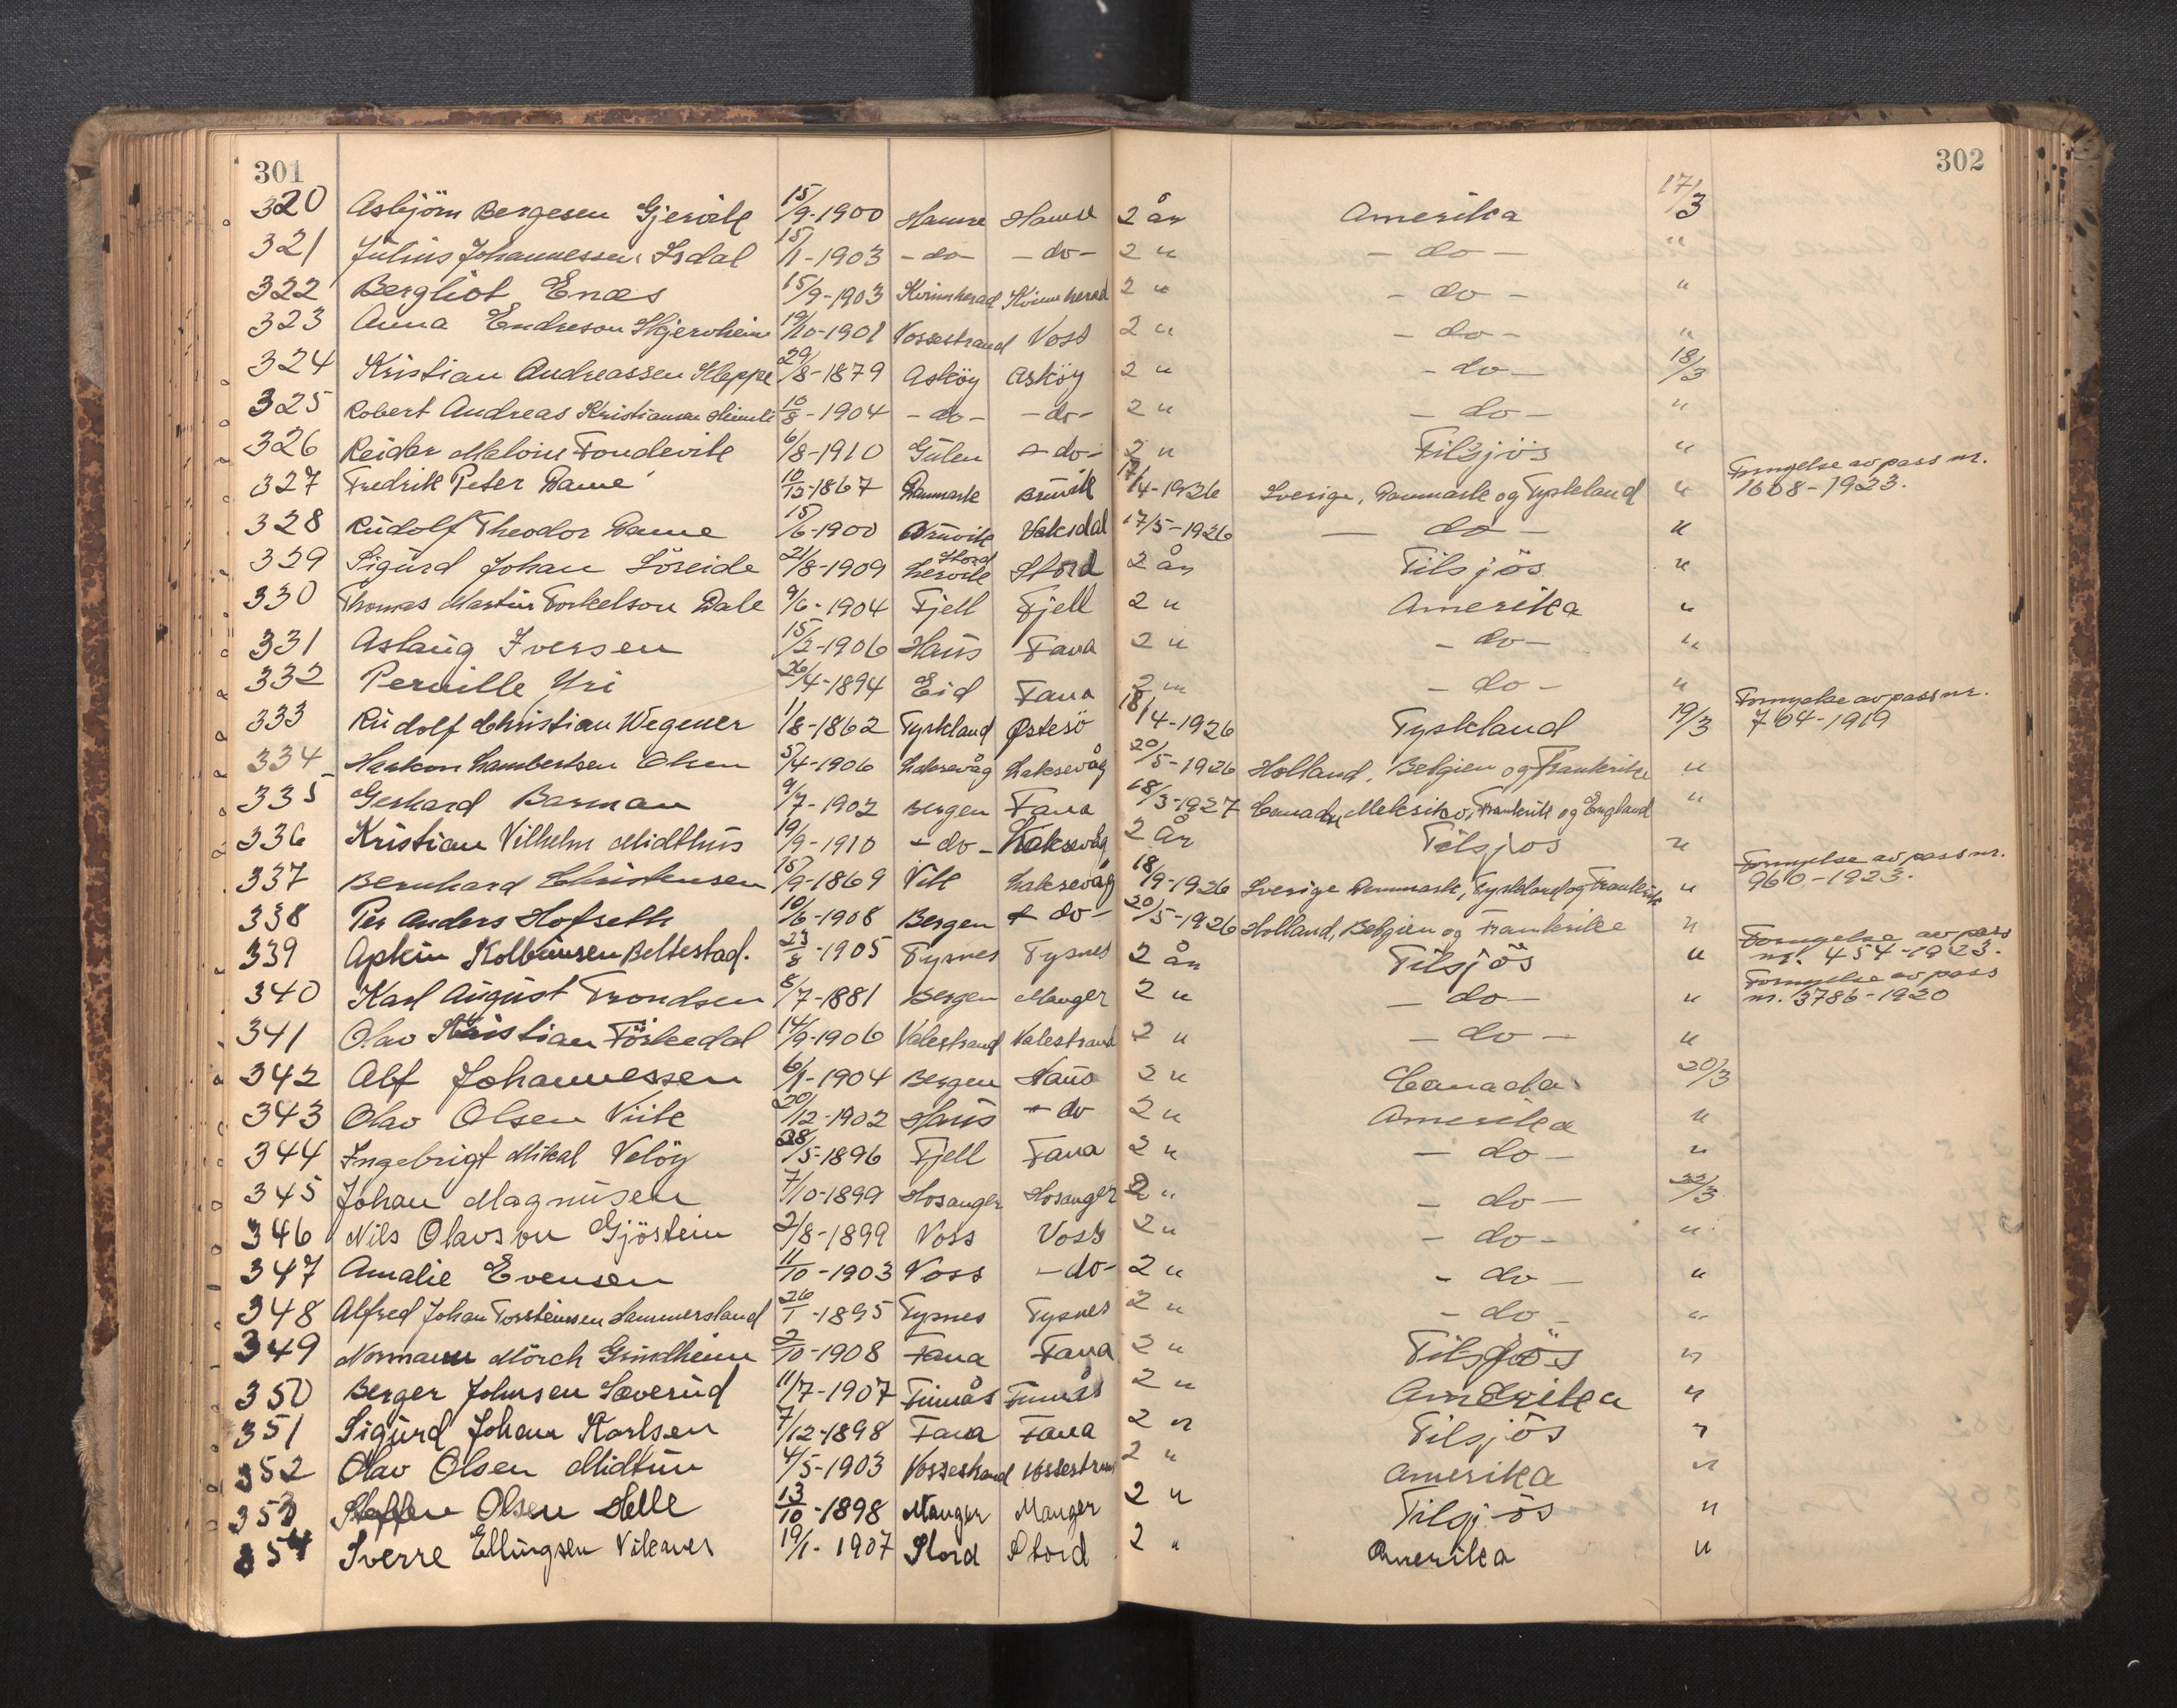 301
302
320 Asbjörn Bergesen Gjervik 15/9-1900 Hamre Hamre 2 år Amerika 17/3
321 Julius Johannessen Isdal 15/1-1903 -do- -do- 2 " -do- "
322 Bergliot Enæs 15/9-1903 Kvinnherad Kvinnherad 2 " -do- "
323 Anna Endreson Skjervheim 19/10-1901 Vossestrand Voss 2 " -do- "
324 Kristian Andreassen Kleppe 29/8-1879 Asköy Asköy 2 " -do- 18/3
325 Robert Andreas Kristiansen 10/8-1904 -do- -do- 2 " -do- "
326 Reidar Meloin Fondevik 6/8-1910 Gulen -do- 2 " Tilsjös "
327 Fredrik Peter Dame 10/12-1867 Danmark Bruvik 17/4-1926 Sverige, Danmark og Tyskland " Fornyelse av pass nr. 1608-1923.
328 Rudolf Theodor Dame 15/6-1900 Bruvik Vaksdal 17/5-1926 -do- "
329 Sigurd Johan Söreide 21/8-1909 Lervik Stord Stord 2 år Tilsjös "
330 Thomas Martin Torkelson Dale 9/6-1904 Fjell Fjell 2 " Amerika "
331 Aslaug Iversen 15/2-1906 Haus Fana 2 " -do- "
332 Pernille Yri 26/4-1894 Eid Fana 2 " -do- "
333 Rudolf Christian Wegener 1/8-1862 Tyskland Östesö 18/4-1926 Tyskland 19/3 Fornyelse av pass nr. 764-1919
334 Haakon Lambertsen Olsen 5/4-1906 Laksevåg Laksevåg 20/5-1926 Holland, Belgien og Frankrike "
335 Gerhard Barman 9/7-1902 Bergen Fana 18/3-1927 Canada, Meksiko, Frankrik og England "
336 Kristian Vilhelm Midthus 19/9-1910 -do- Laksevåg 2 år Tilsjös "
337 Bernhard Christensen 15/9-1869 Vik Laksevåg 18/9-1926 Sverige Danmark, Tyskland og Frankrik " Fornyelse av pass nr. 960-1923.
338 Per Anders Hofseth 10/6-1908 Bergen -do- 20/5-1926 Holland, Belgien og Frankrike "
339 Kolbeinsen Beltestad. 23/8-1905 Tysnes Tysnes 2 år Tilsjös " Fornyelse av pass nr. 454-1923.
340 Karl August Trondsen 8/7-1881 Bergen Manger 2 " -do- " Fornyelse av pass nr. 3786-1920
341 Olav Kristian Förkedal 14/9-1906 Valestrand Valestrand 2 " -do- "
342 Alf Johannessen 6/1-1904 Bergen Haus 2 " Canada 20/3
343 Olav Olsen Viik 20/12-1902 Haus -do 2 " Amerika "
344 Ingebrigt Mikal Velöy 28/5-1896 Fjell Fana 2 " -do- "
345 Johan Magnusen 7/10-1899 Hosanger Hosanger 2 " -do- 22/3
346 Nils Olavson Gjöstein 2/8-1899 Voss Voss 2 " -do- "
347 Amalie Evensen 11/10-1903 Voss -do- 2 " -do- "
348 Alfred Johan Torsteinsen Hammersland 26/1-1895 Tysnes Tysnes 2 " -do- "
349 Normann Mörch Grindheim 2/10-1908 Fana Fana 2 " Tilsjös "
350 Berger Johnsen Sæverud 11/7-1907 Finnås Finnås 2 " Amerika "
351 Sigurd Johan Karlsen 7/12-1898 Fana Fana 2 " Tilsjös "
352 Olav Olsen Midtun 4/5-1903 Vossestrand Vossestrand 2 " Amerika "
353 Steffen Olsen Helle 13/10-1898 Manger Manger 2 " Tilsjös "
354 Sverre Ellingsen Vikanes 19/1-1907 Stord Stord 2 " Amerika "